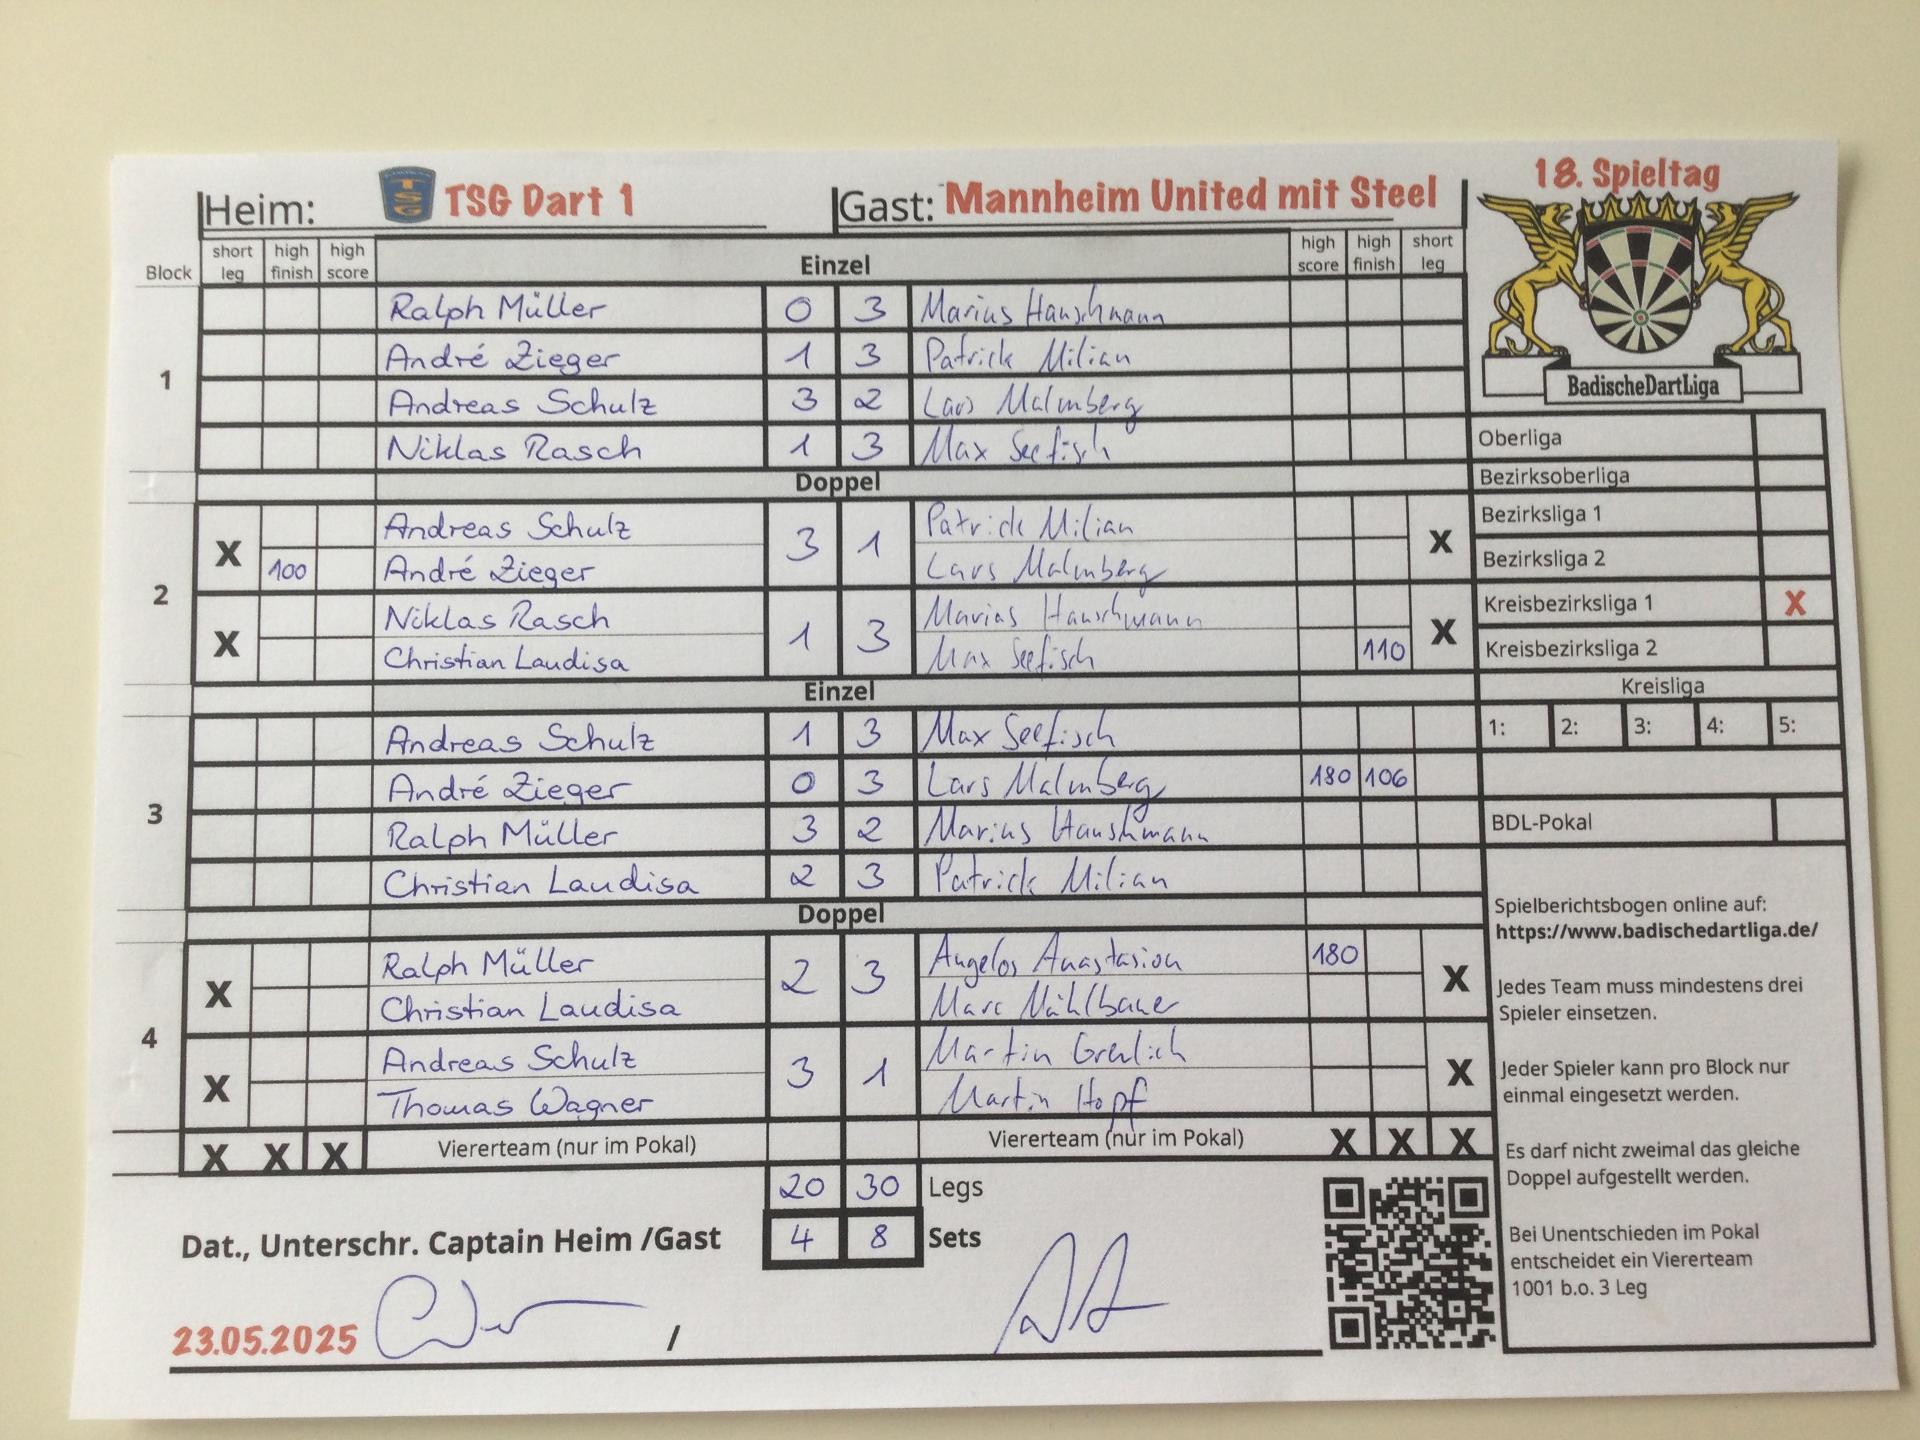 18. Spieltag
Heim: TSG TSG Dart 1 Gast: Mannheim United mit Steel
Block short leg high finish high score Einzel high score high finish short leg
1
Ralph Müller 0 3 Marius Hauschmann
André Zieger 1 3 Patrick Milian
Andreas Schulz 3 2 Lars Malmberg
Niklas Rasch 1 3 Max Seefisch
BadischeDartLiga
Doppel
2
X Andreas Schulz 3 1 Patrick Milian X
100 André Zieger Lars Malmberg
X Niklas Rasch 1 3 Marius Hauschmann X
Christian Laudisa Max Seefisch 110
Einzel
3
Andreas Schulz 1 3 Max Seefisch
André Zieger 0 3 Lars Malmberg 180 106
Ralph Müller 3 2 Marius Hauschmann
Christian Laudisa 2 3 Patrick Milian
Doppel
4
X Ralph Müller 2 3 Angelos Anastasiou 180 X
Christian Laudisa Marc Mühlbauer
X Andreas Schulz 3 1 Martin X
Thomas Wagner Martin Hopf
X X X Viererteam (nur im Pokal) Viererteam (nur im Pokal) X X X
20 30 Legs
Dat., Unterschr. Captain Heim /Gast 4 8 Sets
23.05.2025 /
Oberliga
Bezirksoberliga
Bezirksliga 1
Bezirksliga 2
Kreisbezirksliga 1 X
Kreisbezirksliga 2
Kreisliga
1: 2: 3: 4: 5:
BDL-Pokal
Spielberichtsbogen online auf:
https://www.badischedartliga.de/
Jedes Team muss mindestens drei
Spieler einsetzen.
Jeder Spieler kann pro Block nur
einmal eingesetzt werden.
Es darf nicht zweimal das gleiche
Doppel aufgestellt werden.
Bei Unentschieden im Pokal
entscheidet ein Viererteam
1001 b.o. 3 Leg